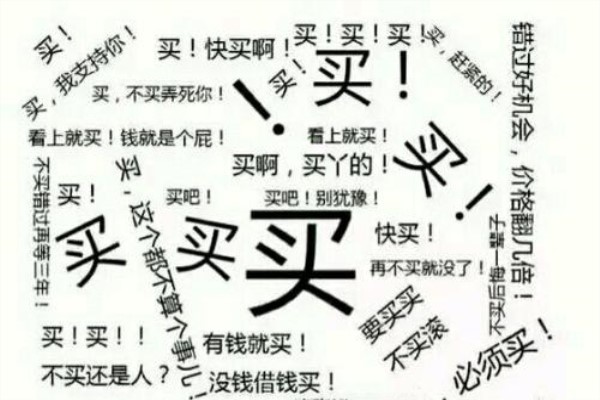 买！
买，我支持你！
买！快买啊！
买！买！买！
买，赶紧的！
错过好机会，价格翻几倍！
买，不买弄死你！
买！
买！
看上就买！钱就是个屁！
！
看上就买！
买！
不买错过再等三年！
买，这个都不算个事儿！
买啊，买丫的！
买！
买吧！
买吧！别犹豫！
买
买
买
快买！
再不买就没了！
不买后悔一辈子
要买买
不买滚
买！买！！
有钱就买！
不买还是人？
没钱借钱买！
必须买！